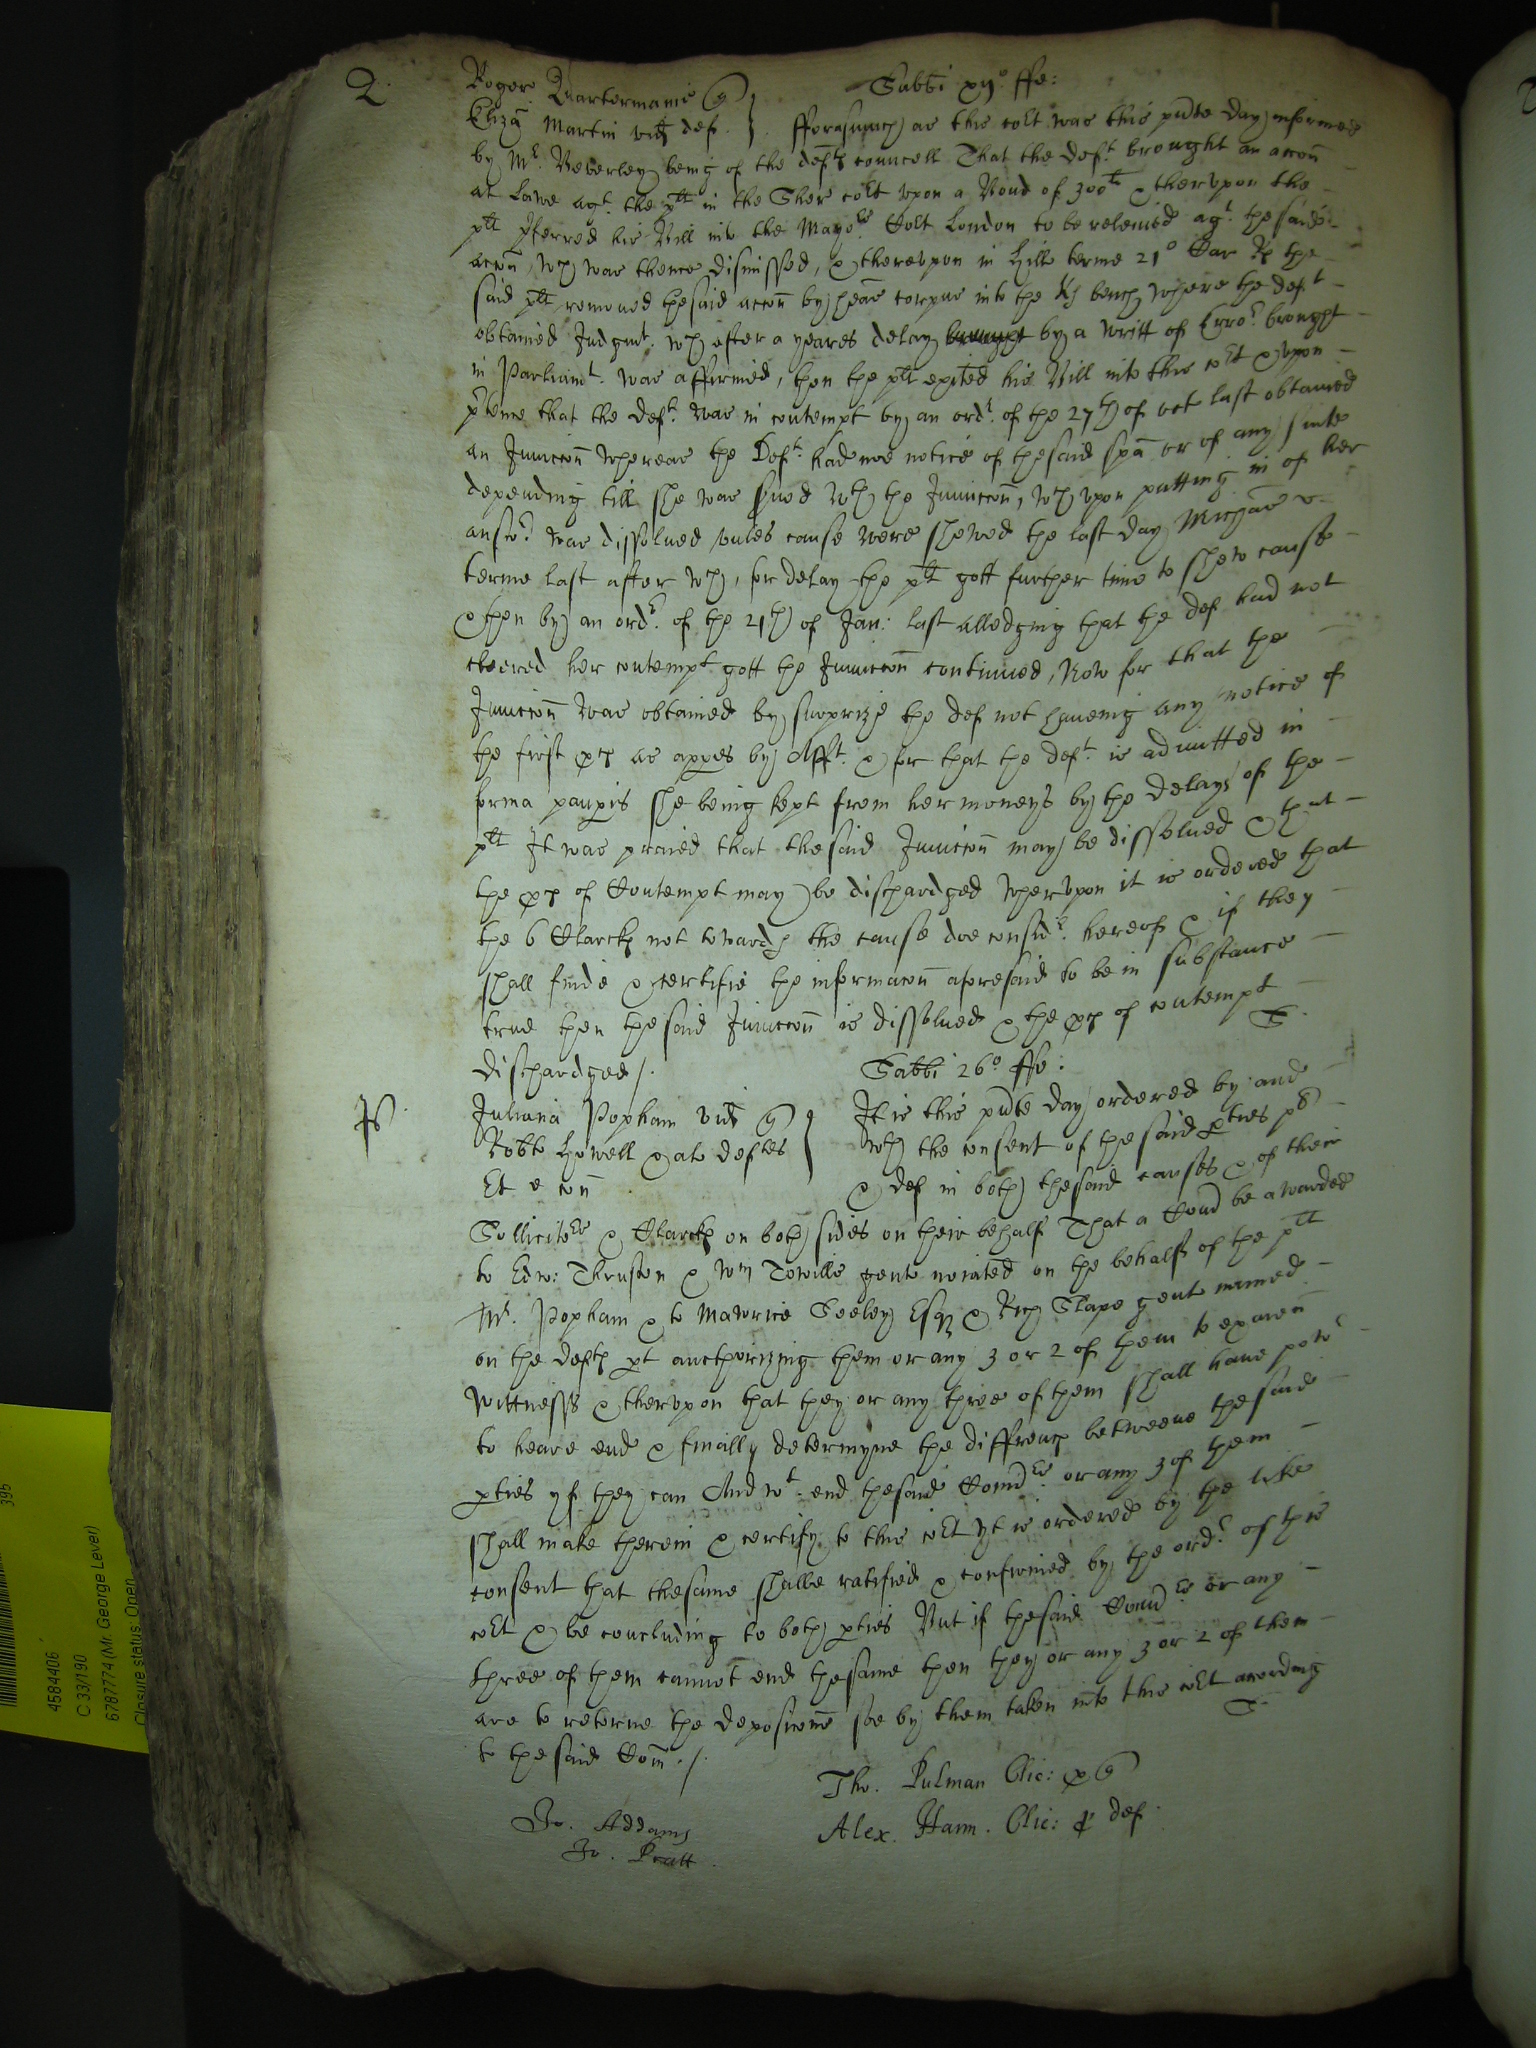 2.
Sabbi xij.o ffe:
Roger Quartermaine q
Eliza Martin vid def. } fforasmuch as this cort was this pnte day informed
by Mr. Beverley being of the defts councell That the deft. brought an accon
at Lawe agt. the plt in the Sher cort vpon a Bond of 300li & therevpon the
plt pferred his Bill into the Mayors Cort London to be releived agt. the said
accon, wch was thence dismissed, & therevpon in Hill terme 21o Car R the
said plt removed the said accon by heas corpus into the Ks bench where the deft
obtained Judgmt. wch after a yeares delay brought by a writt of Error brought
in Parliamt. was affirmed, then the plt exited his Bill into this cort & vpon
ptence that the deft. was in contempt by an ordr. of the 27th of oct last obtained
an Iniuccon whereas the Deft. had noe notice of the said spa or of any suite
depending till she was sued wth the Iniuccon, wch vpon putting in of her
answr was dissolved vnles cause were shewed the last day Michas
terme last after wch, for delay the plt gott further time to shew cause
& then by an ordr. of the 21th of Jan: last alledging that the def had not
cleered her contempt gott the Iniuccon continued, Now for that the
Iniuccon was obtained by surprize the def not haveing any notice of
the first as appes by Afft. & for that the deft. is admitted in
forma paupis she being kept from her moneys by the delays of the
plt It was praied that the said Iniuccon may be dissolved & that
the of Contempt may be dischardged wherevpon it is ordered that
the 6 Clarcks not towards the cause doe considr. hereof & if they
shall finde & certifie the informacon aforesaid to be in substance
true then the said Iniuccon is dissolved & the of contempt
dischardged /.
Sabbi 26o ffe:
Juliana Popham vid q } It is this pnte day ordered by and
Robto Howell & al deftes wth the consent of the said pties
Et e con & def in both the said causes & of their
Sollicitors & Clarcks on both sides on their behalf That a Comd be awarded
to Edw: Thruston & Wm Towills gent noiated on the behalf of the plt
Mr. Popham & to Mawrice Seeley Esqr & Rich Slape gent named
on the defts pt aucthorizing them or any 3 or 2 of them to examen
wittnesses & therevpon that they or any three of them shall have powr
to heare end & finally determyne the diffrencs betweene the said
pties yf they can And wt. end the said Comdrs. or any 3 of them
shall make therein & certify to this cort It is ordered by the like
consent that the same shalbe ratified & confirmed by the ordr. of this
cort & be concluding to both pties But if the said Comdrs or any
three of them cannot end the same then they or any 3 or 2 of them
are to retorne the deposicons soe by them taken into this cort according
to the said Com. /.
Tho. Pulman Clic: p q
Jo. Addams
Alex. Ham. Clic: p def.
Jo. Pratt.
4584406
C 33/190
6787774 (Mr George Lever)
Closure status: Open
395